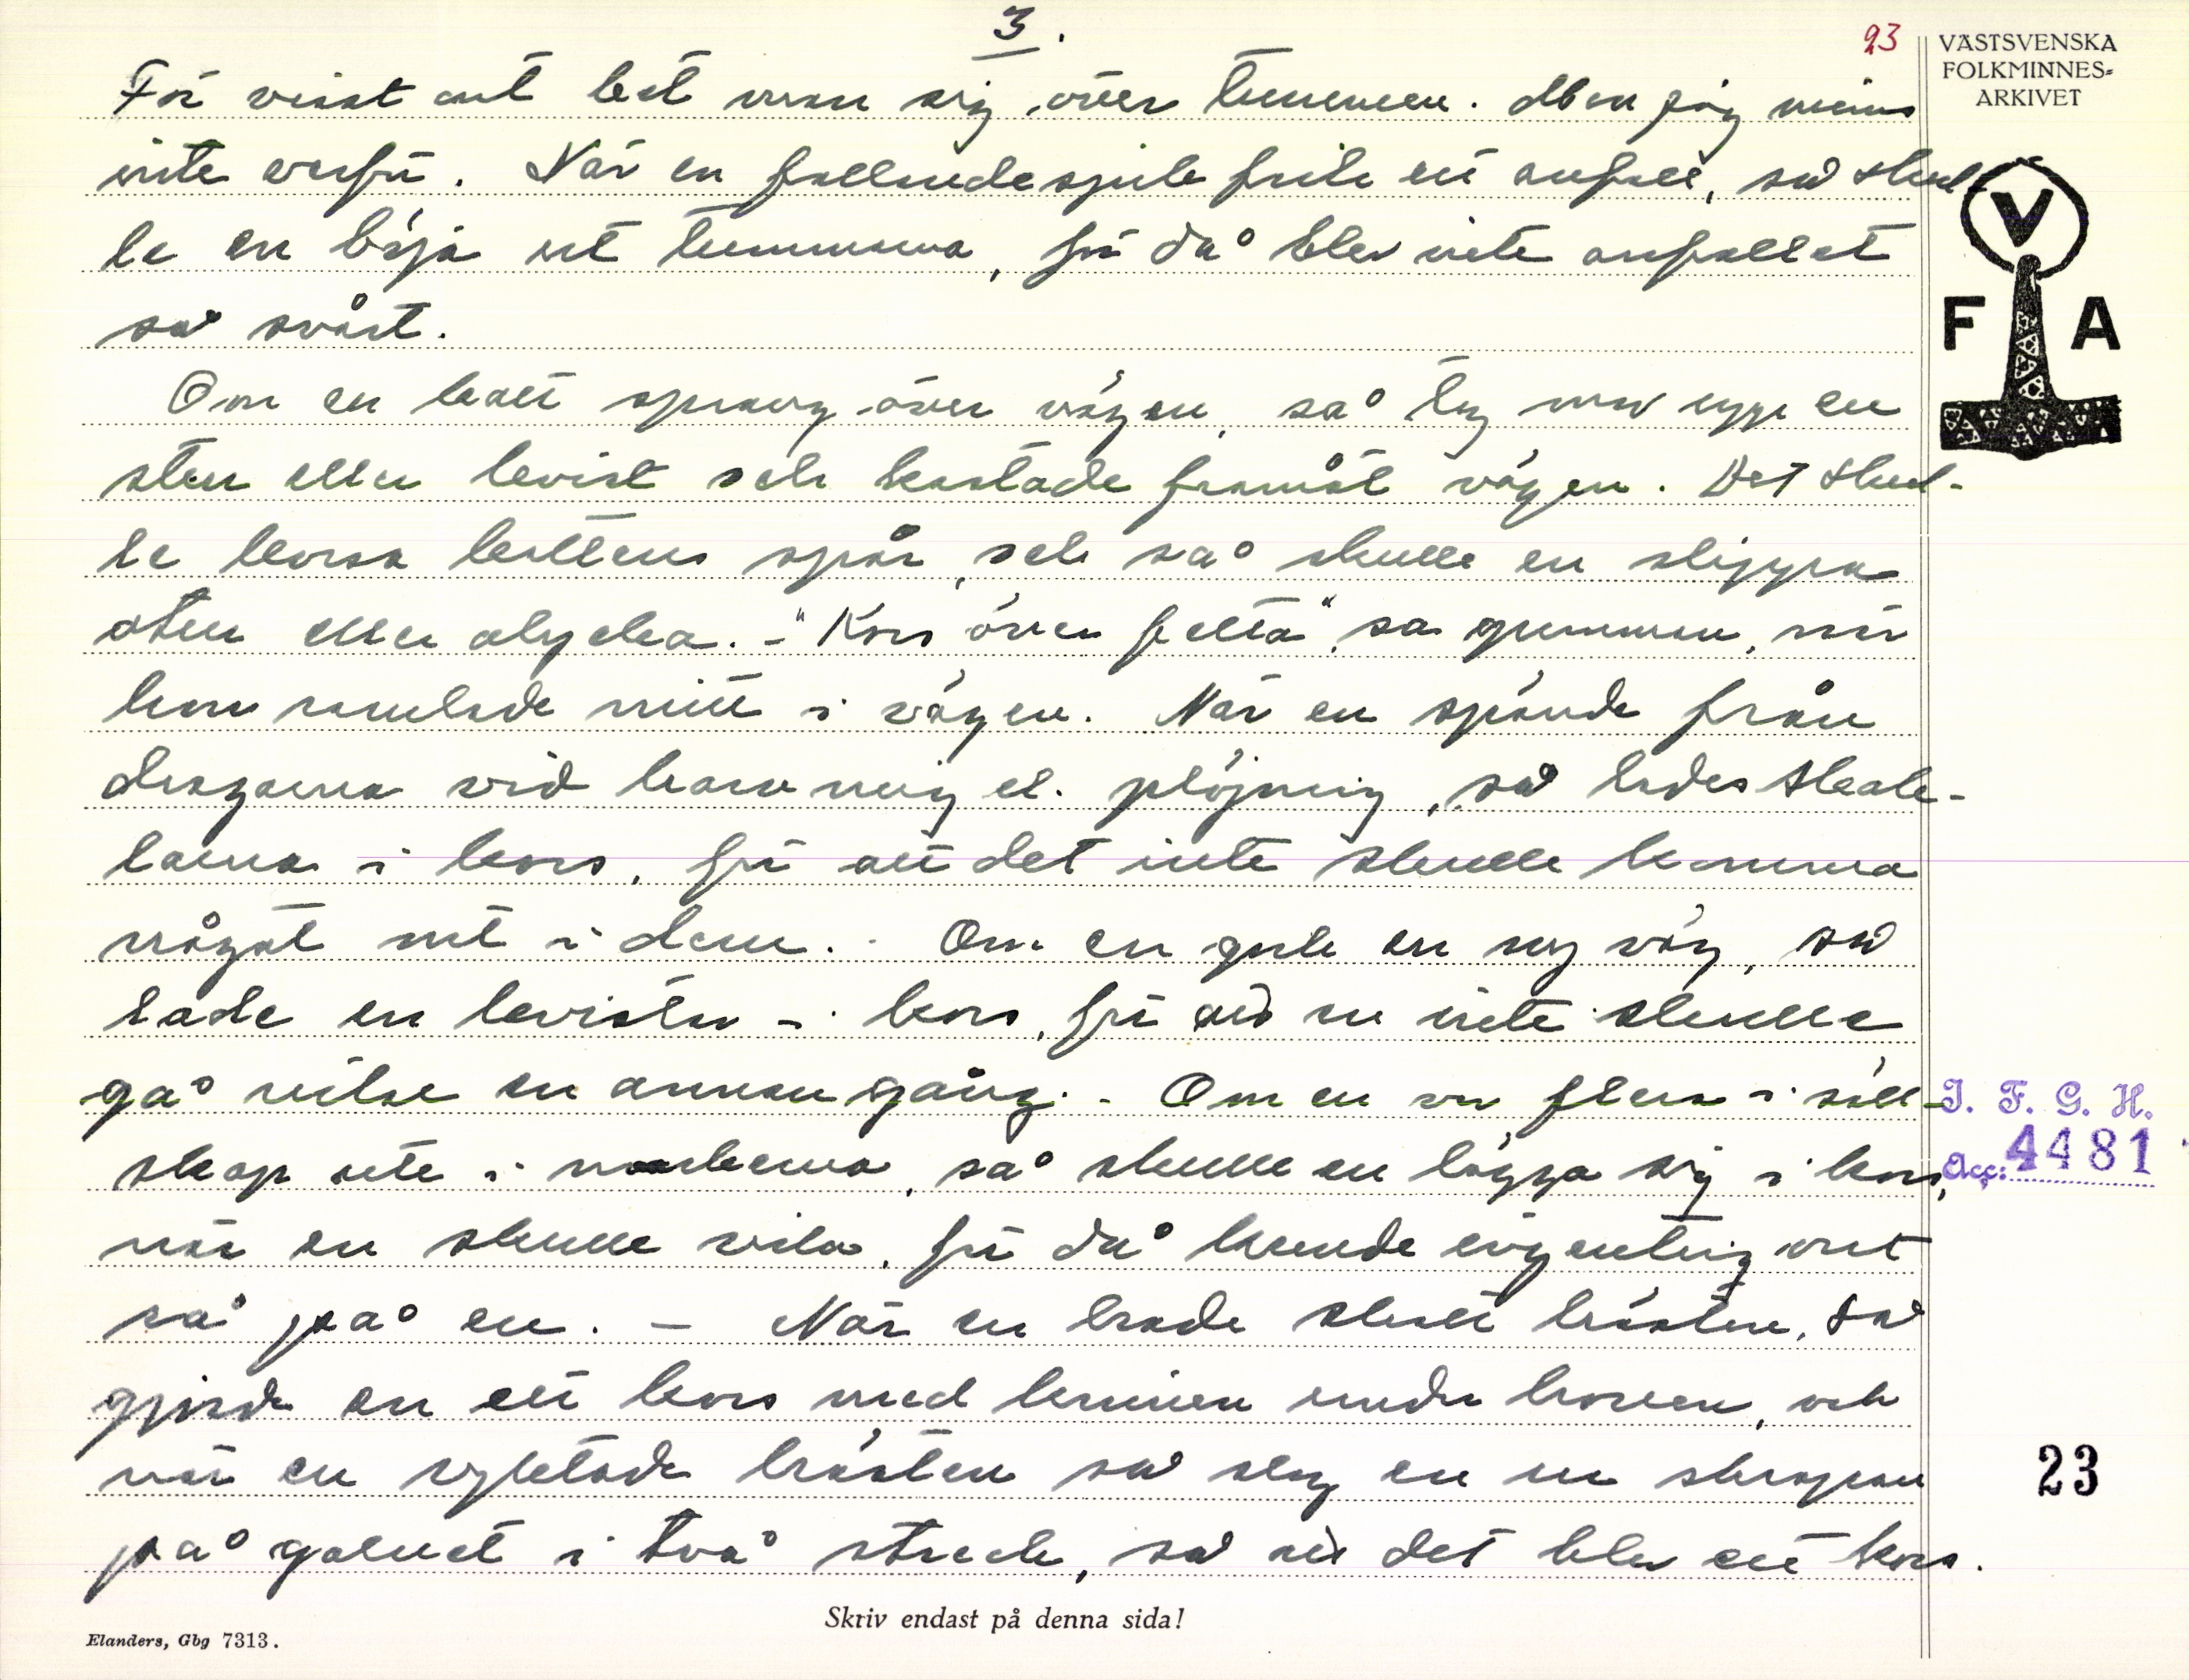 3.
23
VÄSTSVENSKA
FOLKMINNES-
ARKIVET
För visst ont bet man sig över tummen. Men jag minns
inte varför. När en fallandesjuk fick ett anfall, så skul-
le en böja ut tummarna, för då blev inte anfallet
så svårt.
V
F A
Om en katt sprang över vägen, så tog man upp en
sten eller kvist och kastade framåt vägen. Det skul-
le korsa kattens spår, och så skulle en slippa
otur eller olycka. - "Kors över detta", sa gumman, när
hon ramlade mitt i vägen. När en spände från
dragarna vid harvning el. plöjning, så lades skak-
larna i kors, för att det inte skulle komma
något ont i dem. - Om en gick en ny väg, så
lade en kvistar i kors, för att en inte skulle
gå vilse en annan gång. - Om en var flera i säll-
skap ute i markerna, så skulle en lägga sig i kors,
när en skulle vila, för då kunde ingenting ont
rå på en. - När en hade skott hästen, så
gjorde en ett kors med kniven under hoven, och
när en ryktade hästen så slog en ur skrapan
på golvet i två streck, så att det blev ett kors.
I. F. G. H.
Acc: 4481
23
Skriv endast på denna sida!
Elanders, Gbg 7313.